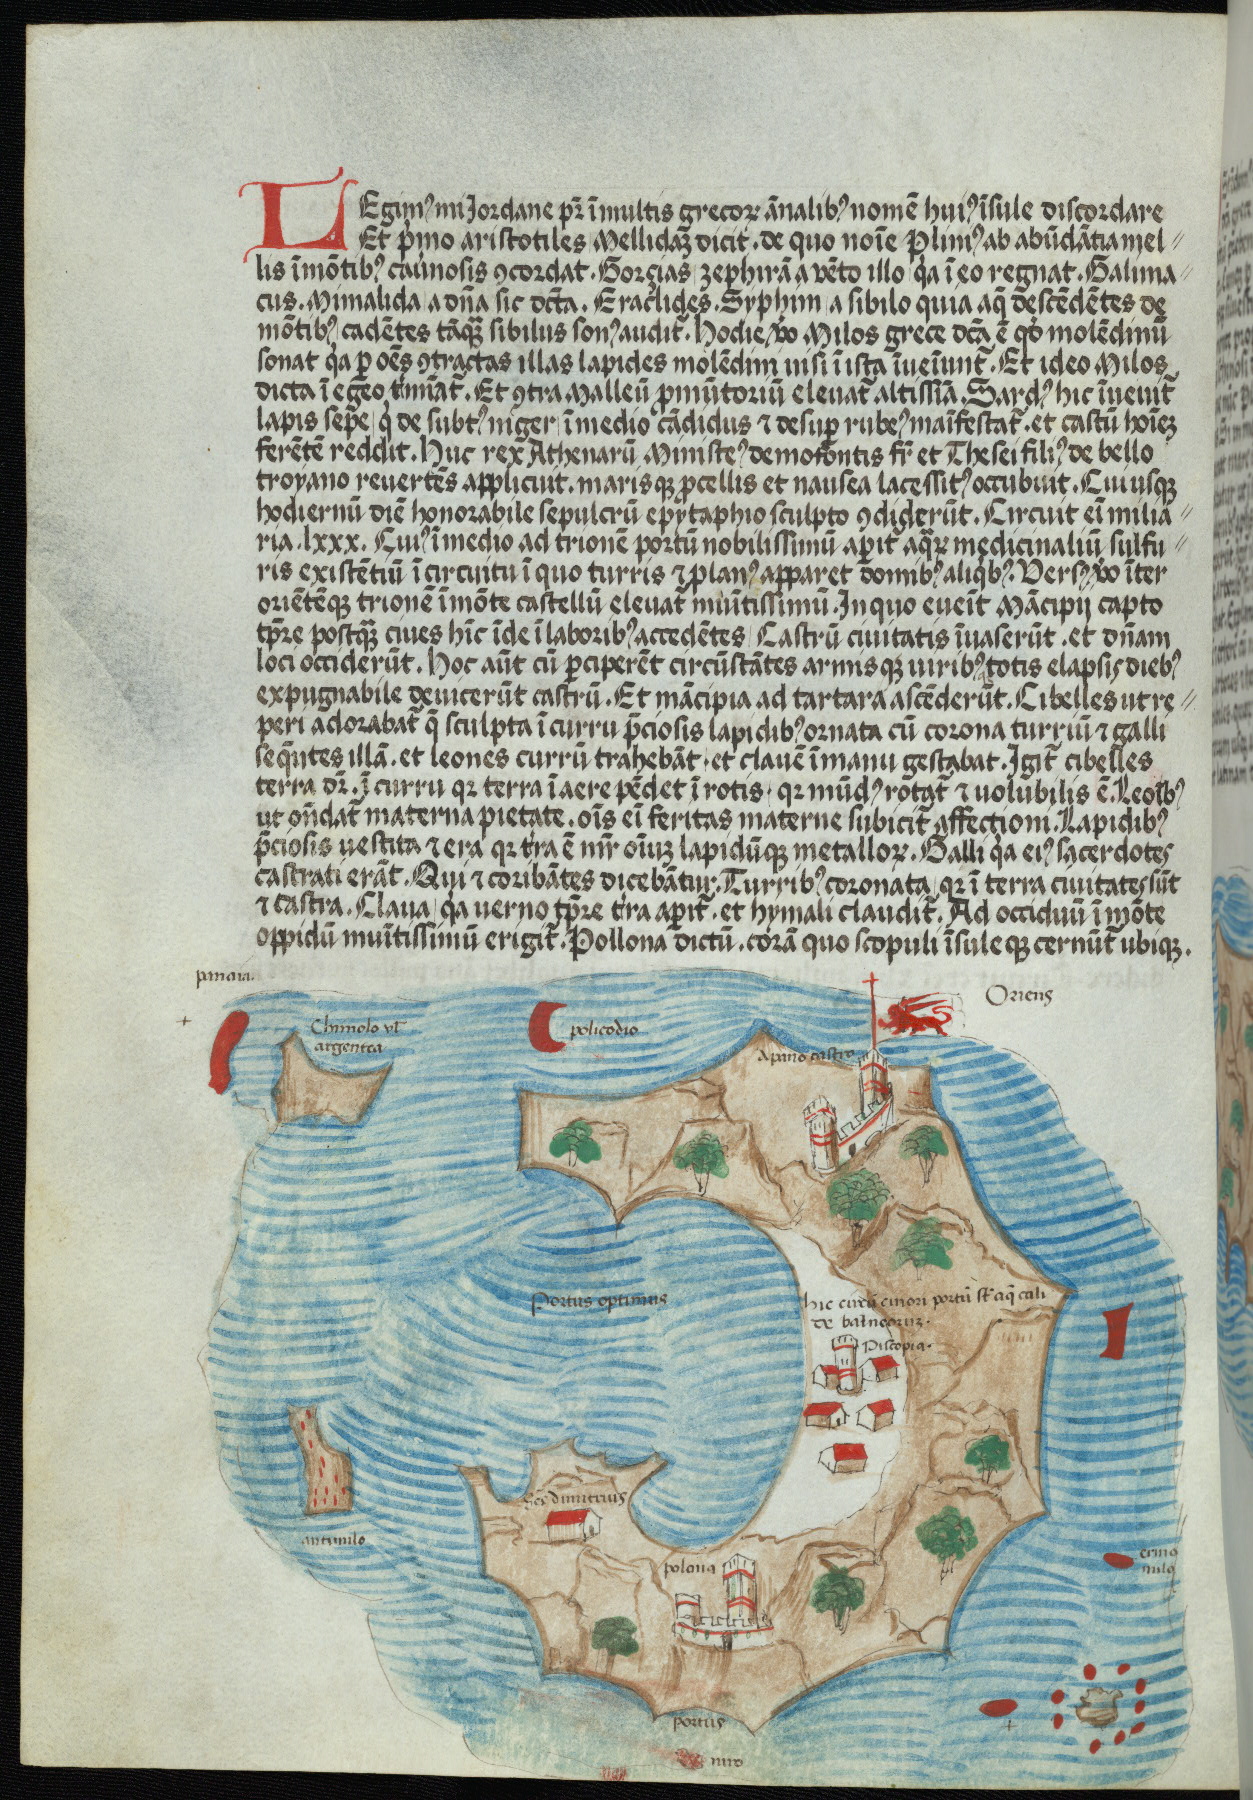 LEgim⁹ mi Jordane pr̄ ī multis grecoꝝ ānalib⁹ nomē hui⁹ īsule discordare
Et p̄mo aristotiles Mellidaꝫ dicit. de quo noīe Plini⁹ ab abūdātia mel⸗
lis ī mōtib⁹ cauīnosis ꝯcordat. Gorgias zephirā a vēto illo q̄a ī eo regnat. Galima⸗
cus. Mimalida a dn̄a sic dc̄ta. Eraclides. Syphum a sibilo quia aq̄ descēdētes de
mōtib⁹ cadētes tāqꝫ sibilus son⁹ audit̄. Hodie v̊o Milos grece dc̄a ē qd̄ molēdinū
sonat q̄a ꝑ oēs ꝯtractas illas lapides molēdini nisi ī ista īueīunt̄. Et ideo Milos
dicta ī egeo t̄miat̄. Et ꝯtra Malleū ꝓmūtoriū eleuat̄ altissīa. Sard⁹ hic īuenit̄
lapis sepe q̄ de subt⁹ niger ī medio cādidus ⁊ desuꝑ rube⁹ maīfestat̄. et castū hoīeꝫ
ferētē reddit. Huc rex Athenarū Ministe⁹ demofōntis fr̄ et Thesei fili⁹ de bello
troyano reuertēs applicuit. marisqꝫ ꝓcellis et nausea lacessit⁹ occubuit. Cui usqꝫ
hodiernū diē honorabile sepulcrū epytaphio sculpto ꝯdiderūt. Circuit eī milia⸗
ria .lxxx. Cui⁹ ī medio ad trionē portū nobilissimū apit̄ aqꝝ medicinaliū sulfu⸗
ris existētiū ī circuitu ī quo turris ⁊ plan⁹ apparet domib⁹ aliq̄b⁹. Vers⁹ v̊o īter
oriētēqꝫ trionē ī mōte castellū eleuat̄ muītissimū. In quo eueīt Mācipij capto
tp̄re postqꝫ ciues hīc īde ī laborib⁹ accedētes Castrū ciuitatis īuaserūt. et dn̄am
loci occiderūt. Hoc aūt cū ꝑciperēt circūstātes armisqꝫ uirib⁹ totis elapsis dieb⁹
expugnabile deuicerūt castrū. Et mācipia ad tartara ascēderūt. Cibelles ut re⸗
peri adorabat̄ q̄ sculpta ī curru p̄ciosis lapidib⁹ ornata cū corona turriū ⁊ galli
seqūtes illā. et leones currū trahebāt. et clauē ī manu gestabat. Igit̄ cibelles
terra dr̄. ī curru qr̄ terra ī aere pēdet ī rotis. qr̄ mūd⁹ rōtat̄ ⁊ uolubilis ē. Leoīb⁹
ut on̄dat̄ materna pietate. oīs eī feritas materne subicit̄ affectioni. Lapidib⁹
p̄ciosis uestita ⁊ era qr̄ tr̄a ē mr̄ oīuꝫ lapidūqꝫ metalloꝝ. Galli q̄a ei⁹ sacerdotes
castrati erāt. Qui ⁊ coribātes dicebātur. Turrib⁹ coronata qr̄ ī terra ciuitates sūt
⁊ castra. Claua q̄a uerno tp̄re tr̄a apit̄. et hymali claudit̄. Ad occiduū ī mōte
oppidū muītissimū erigit̄. Pollona dictū. corā quo scopuli īsuleqꝫ cernūt̄ ubiqꝫ.
panaia.
Oriens
Chimolo vl̄
argentea
policodio
Apano castro
Portus optimus
hic circū cinori portū st̄ aq̄ cali
de balneorum.
Piscopia.
Sc̄s dimitrius
antimilo
polona
erimo
milo
portus
niro